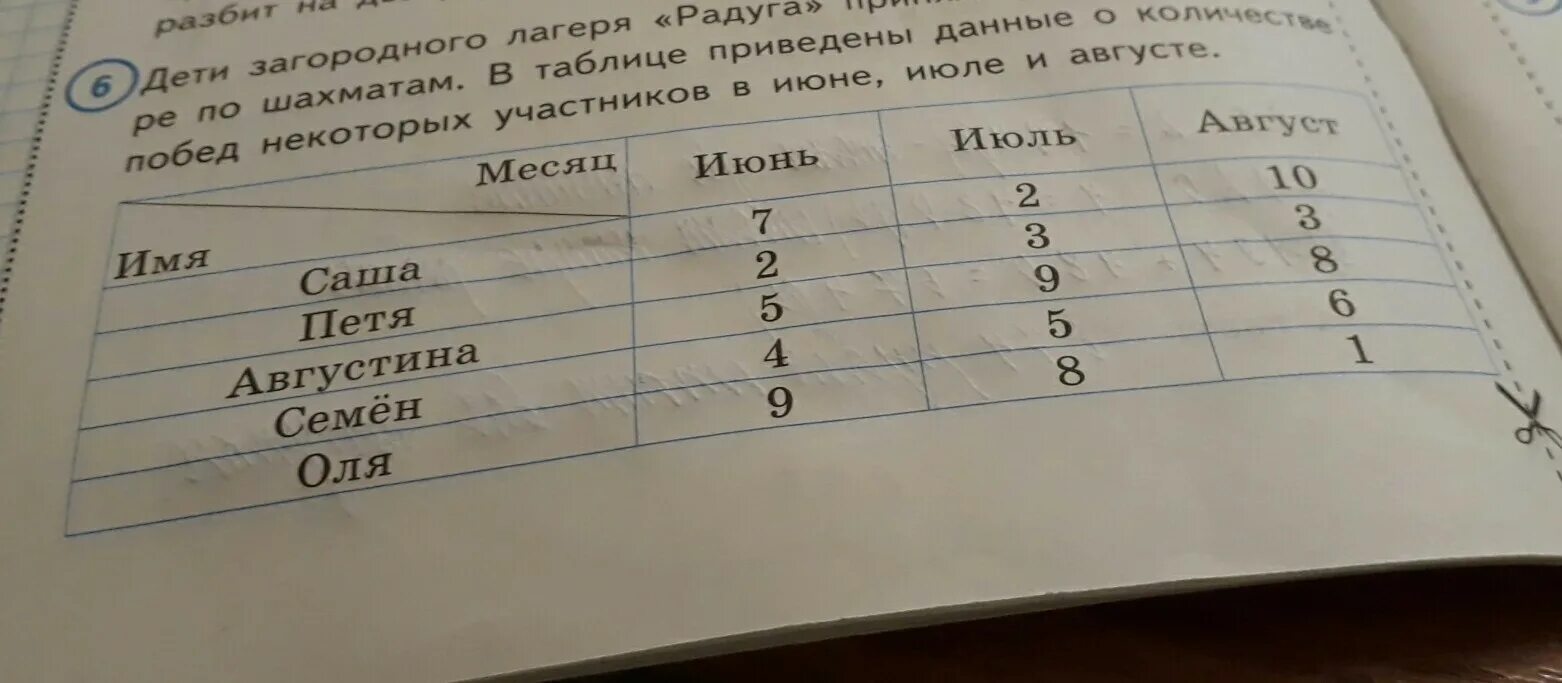 разбит на
6 Дети загородного лагеря «Радуга»
ре по шахматам. В таблице приведены данные о количестве
побед некоторых участников в июне, июле и августе.
Месяц Июнь Июль Август
Имя
Саша 7 2 10
Петя 2 3 3
Августина 5 9 8
Семён 4 5 6
Оля 9 8 1